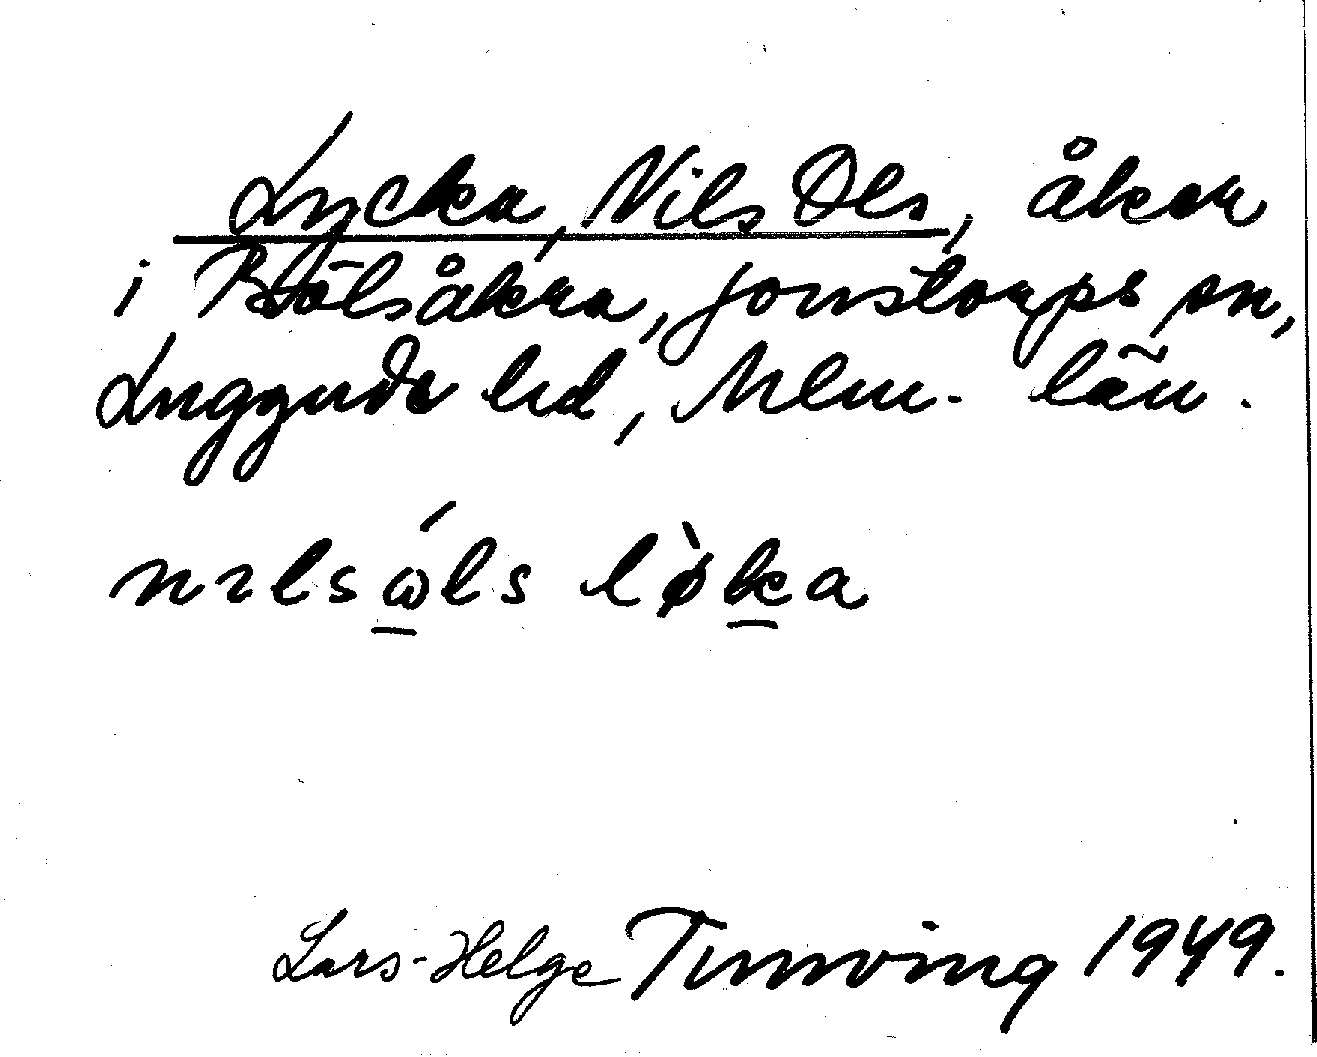 Lycka, Nils Ols, åker
i Bölsåkra, Jonstorps sn,
Luggude hd, Mlm. län.
nılsώ̲ls lø̀k̲a
Lars-Helge Tunving 1949.